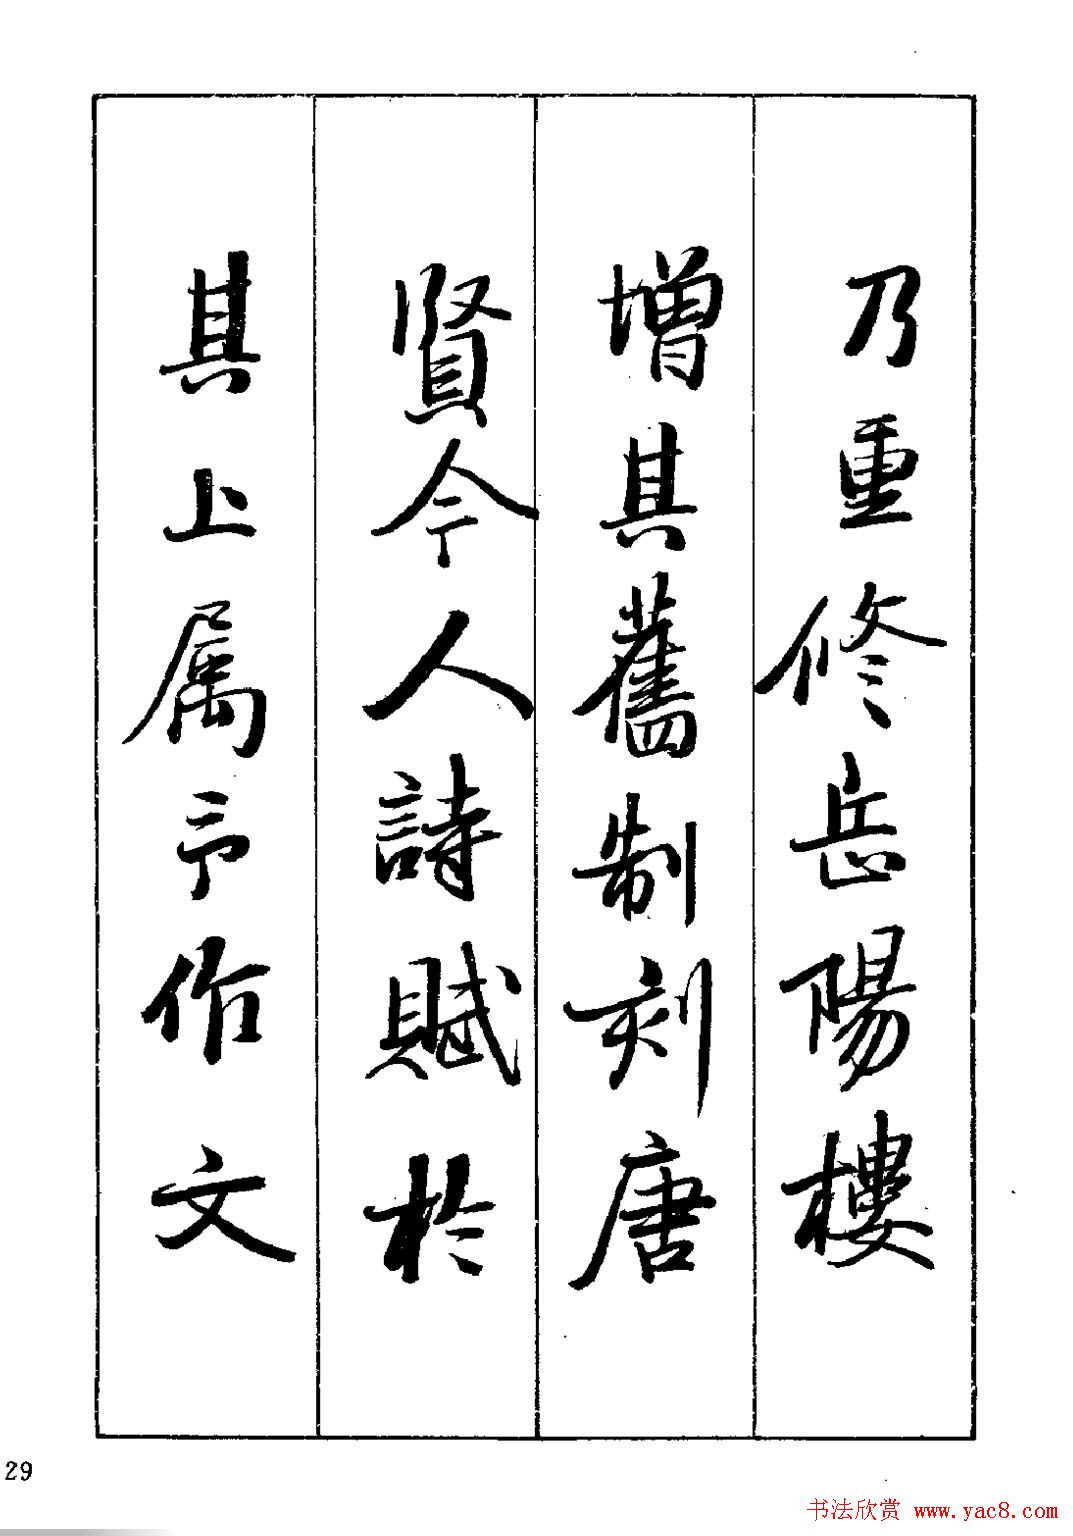 乃重修岳陽樓
增其舊制刻唐
賢今人詩賦於
其上属予作文
29
书法欣赏 www.yac8.com